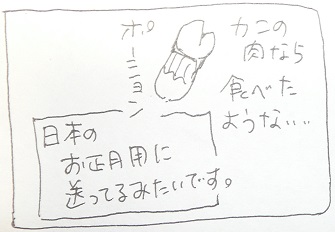 カニの
肉なら
食べた
ような...
ポーション
日本の
お正月用に
送ってるみたいです。